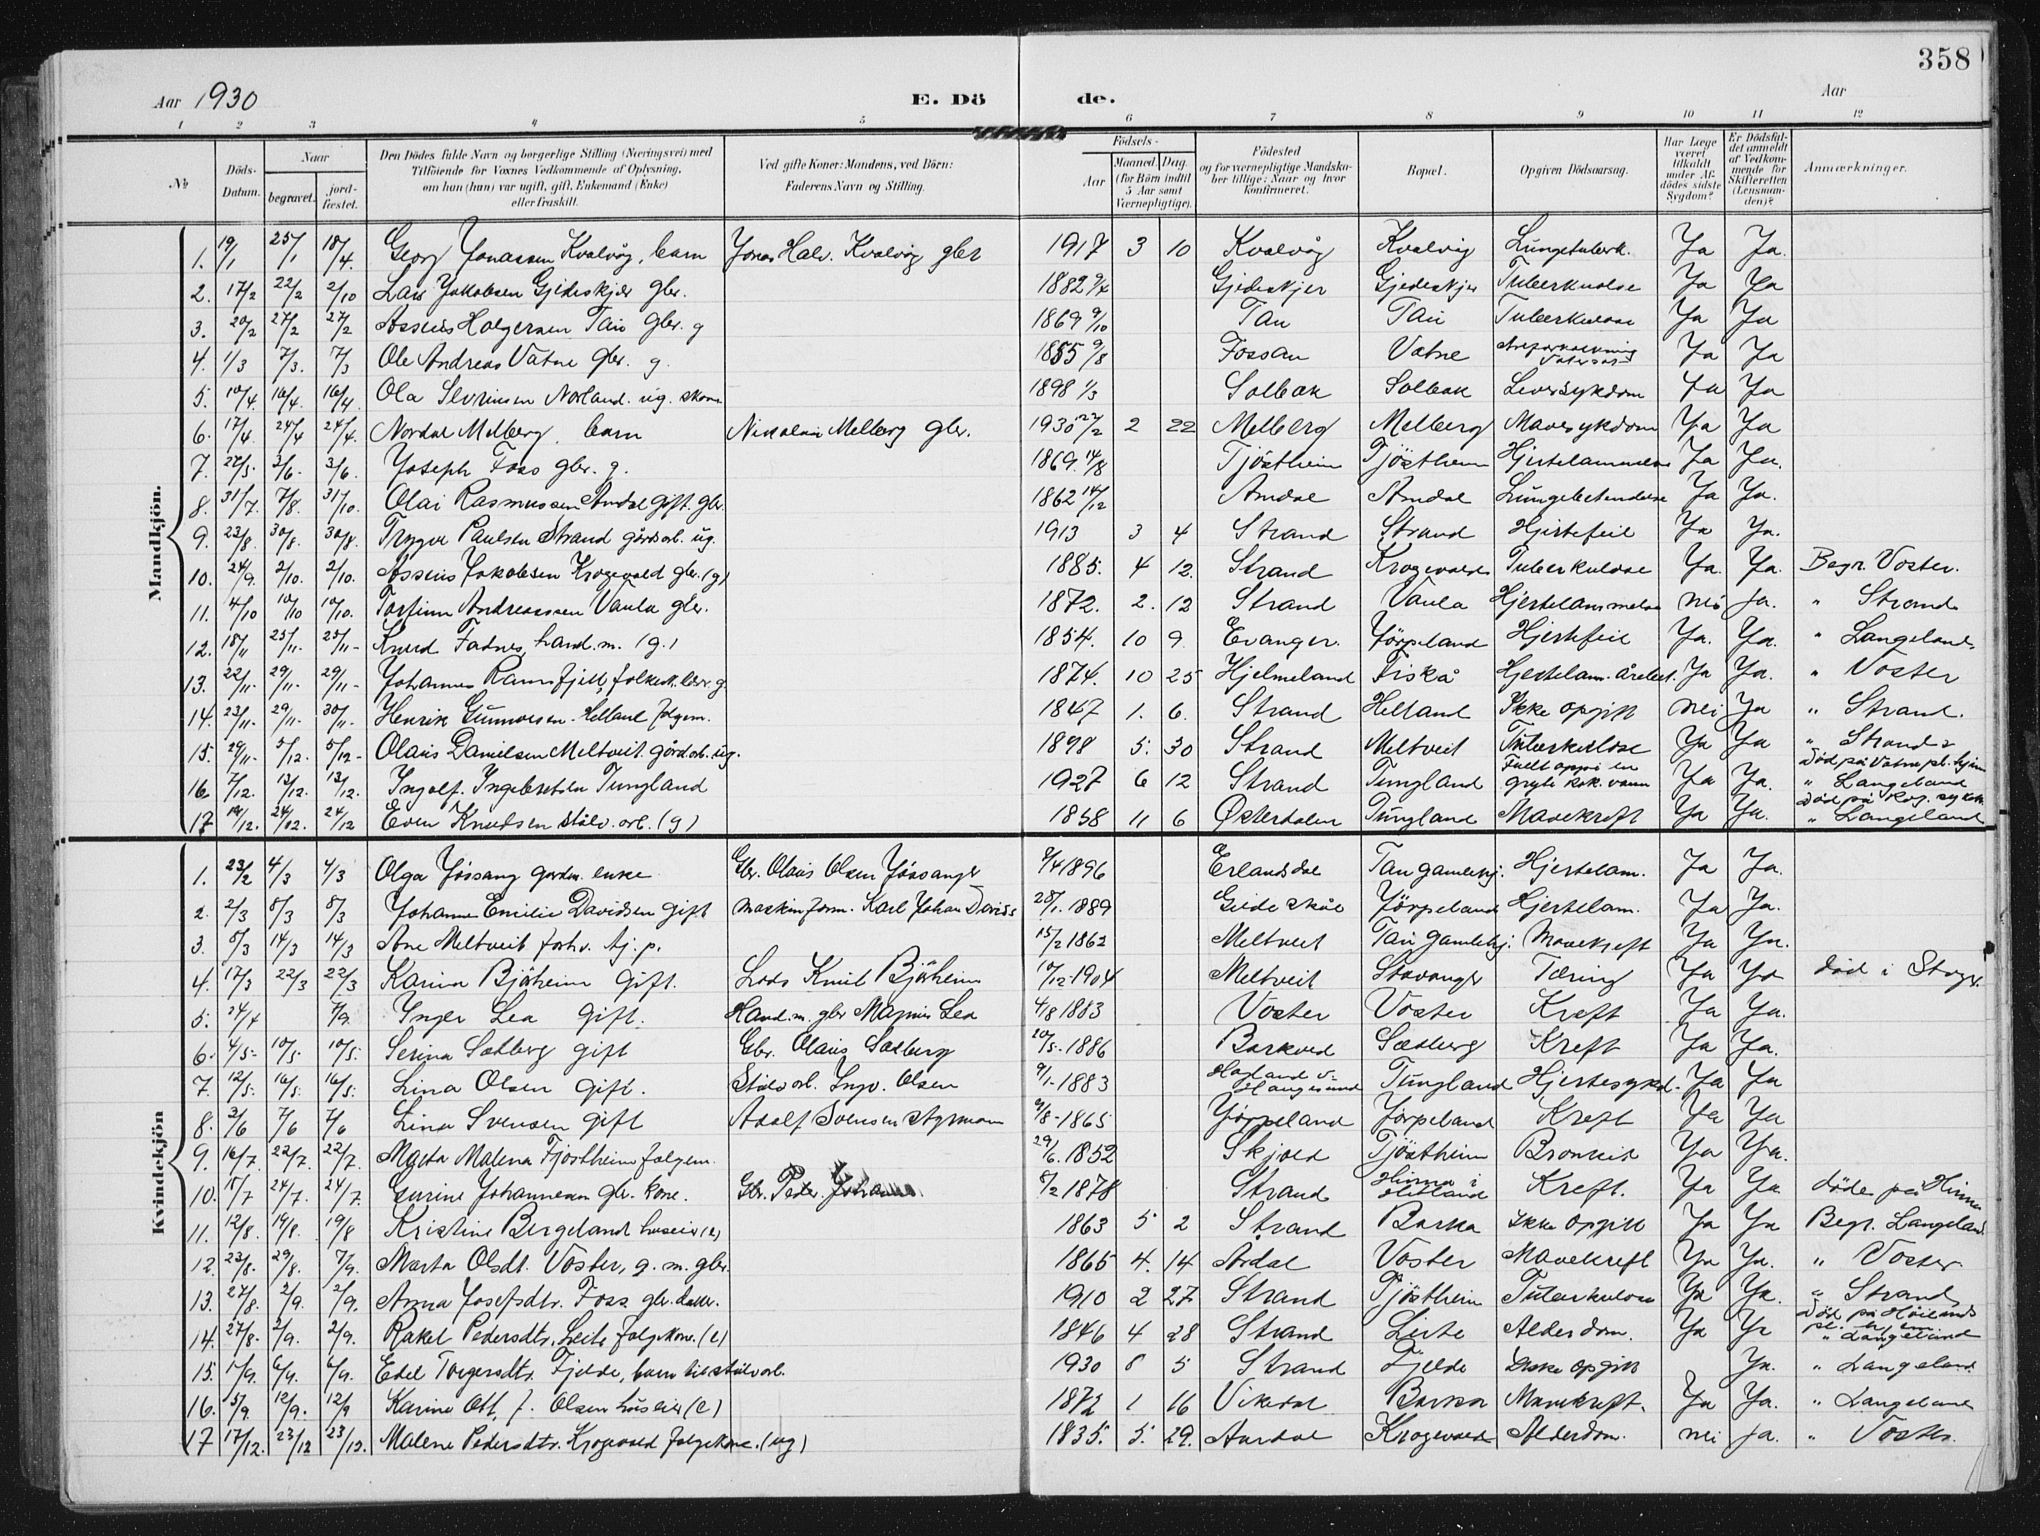 358
Aar 1930 E. Dö de. Aar
1 2 3 4 5 6 7 8 9 10 11 12
№ Döds-Datum. Naar begravet. jord-fæstet. Den Dödes fulde Navn og borgerlige Stilling (Næringsvei) med Tilföiende for Voxnes Vedkommende af Oplysning, om han (hun) var ugift, gift, Enkemand (Enke) eller fraskilt. Ved gifte Koner: Mandens, ved Börn: Faderens Navn og Stilling. Födsels- Aar Maaned. Dag. (for Börn indtil 5 Aar samt Værnepligtige). Födested og for værnepligtige Mandskaber tillige: Naar og hvor konfirmeret. Bopæl. Opgiven Dödsaarsag. Har Læge været tilkaldt under Afdödes sidste Sygdom? Er Dödsfaldet anmeldt af Vedkommende for Skifteretten (Lensmanden)? Anmærkninger.
Mandkjön.
1. 19/1 25/1 18/4. Georg Jonassen Kvalvåg, barn Jonas Halv. Kvalvåg gbr 1917 3 10 Kvalvåg Kvalvåg Lungetuberk. Ja Ja.
2. 17/2 22/2 2/10 Lars Jakobsen Gjideskjær gbr. 1882 9/4 Gjedeskjer Gjedeskjer Tuberkulose Ja Ja
3. 20/2 27/2 27/2 Asseus Holgersen Tau gbr. g 1869 9/10 Tau Tau Tuberkulose Ja Ja
4. 1/3 7/3. 7/3 Ole Andreas Vatne gbr. g. 1855 9/8 Fossan Vatne Areforkalkning Ja Ja
5. 10/4. 16/4. 16/4 Ola Severinsen Norland. ug. skom 1898 1/3 Solbak Solbak Leversykdom Ja Ja
6. 17/4. 24/4 24/4. Nordal Melberg, barn Nikolai Melberg gbr. 1930 22/2 2 22 Melberg Melberg Mavesykdom Ja Ja
7. 22/5. 3/6. 3/6. Joseph Foss gbr. g. 1869. 14/8 Tjöstheim Tjöstheim Hjertelammelse Ja Ja.
8. 31/7. 7/8 31/10. Olai Rasmussen Amdal gift. gbr. 1862 14/12 Amdal Amdal Lungebetendelse Ja Ja.
9. 23/8. 30/8. 30/8. Trygve Paulsen Strand gårdsarb. ug. 1913 3 4 Strand Strand Hjertefeil Ja Ja.
10. 24/9. 2/10. 2/10. Asseus Jakobsen Krogevold gbr. (g) 1885. 4 12. Strand Krogevold Tuberkulose Ja. Ja. Begr. Voster.
11. 4/10 10/10 10/10. Torfinn Andreassen Vaula gbr. 1872. 2. 12 Strand Vaula Hjertelammelse nei ja. " Strand
12. 18/11 25/11- 25/11- Knud Fatnes, hand.m. (g.) 1854. 10 9. Evanger. Jörpeland Hjertefeil Ja. Ja. " Langeland
13. 22/11- 29/11- 29/11- Johannes Ramsfjell, folkesk.lær. g. 1874. 10 25 Hjelmeland Fiskå Hjertelam. Ja Ja. " Voster
14. 23/11. 29/11. 30/11. Henrik Gunvorsen. Helland folgem. 1847 1. 6. Strand Helland Ikke opgitt nei. Ja " Strand.
15. 29/11- 5/12. 5/12- Olaus Danielsen Meltveit gårdarb. ug. 1898 5. 30 Strand Meltveit Tuberkulose Ja Ja " Strand Död på Vatne pl.hjem
16 7/12. 13/12. 13/12. Ingolf. Ingebretsen Tungland 1927 6 12 Strand Tungland Faldt oppi en gryte kok. vann Ja Ja. " Langeland
17 19/12. 24/12. 24/12 Even Knudsen stålv. arb. (g) 1858 11 6 Østerdalen Tungland Mavekreft Ja Ja. Död på Rog. sykeh. " Langeland
Kvindekjön
1. 23/2 4/3 4/3 Olga Jössang gardm. enke Gbr. Olaus Olsen Jössang 9/4 1896 Erlandsdal Tau gamlehj. Hjertelam. Ja Ja.
2. 2/3 8/3 8/3 Johanne Emilie Davidsen gift Maskinform. Karl Johan Davids 28/1. 1889 Gilde skål Jörpeland Hjertelam. Ja Ja.
3. 8/3 14/3 14/3 Ane Meltveit forhv. tj.p. 15/2 1862 Meltveit Tau gamlehj. Mavekreft Ja Ja.
4. 17/3 22/3 22/3 Karina Bjöheim gift. Lods Knut Bjöheim 10/12-1904 Meltveit Stavanger Tæring Ja Ja död i Stvgr.
5. 24/4 7/9. Inger Lea gift. Hand.m. gbr Magnus Lea 4/8 1883 Voster Voster Kreft Ja Ja.
6. 4/5- 10/5. 10/5. Serina Sædberg gift Gbr. Olaus Sædberg 20/5-1886 Barkved Sædberg Kreft Ja Ja.
7. 12/5. 16/5. 16/5. Lina Olsen gift. Stålv arb. Ingv. Olsen 9/1-1883 Hagland v. Haugesund Tungland Hjertesykd. Ja Ja
8. 3/6 7/6 7/6 Lina Svensen gift Adolf Svensen styrmann 9/8-1865 Jörpeland Jörpeland Kreft Ja Ja
9. 16/7. 22/7. 22/7. Marta Malena Tjöstheim folgem. 29/6. 1852 Skjold Tjöstheim Bronkit Ja Ja.
10. 18/7 24/7. 24/7. Gurine Johannesen gbr. kone. Gbr. Peder. 8/2 1878 Strand Hinna i Hetland Kreft. Ja Ja död på Hinna
11. 12/8. 19/8. 19/8 Kristine Bergeland huseier (e) 1863 5 2 Strand Barka Ikke opgitt Ja Ja Begr. Langeland
12. 23/8. 29/8. 7/9. Marta Olsdt. Voster, g. m. gbr. 1865 4. 14 Årdal Voster Mavekreft Ja Ja. " Voster
13. 27/8. 2/9. 2/9. Anna Josefsdtr. Foss gbr. datter. 1910 2 27 Strand Tjöstheim Tuberkulose Ja Ja. " Strand
14. 27/8- 2/9. 2/9. Rakel Pedersdtr. Leite folgekone. (e) 1846 4 28 Strand Leite Alderdom. Ja Ja Död på Höilands pl. hjem " Langeland
15. 1/9. 6/9. 6/9. Edel Torgersdtr. Fjelde, barn til stålv arb. 1930 8 5 Strand Fjelde Ikke opgitt Ja. " Langeland
16. 5/9. 12/9. 12/9 Karine Ott. f. Olsen huseier (e) 1872 1 16 Vikedal Barka Mavekreft. Ja Ja. " Langeland
17 17/12. 23/12 23/12. Malene Pedersdtr. Krogevold folgekone. (ug) 1835. 5. 29. Aardal Krogevold Alderdom. nei ja. " Voster.